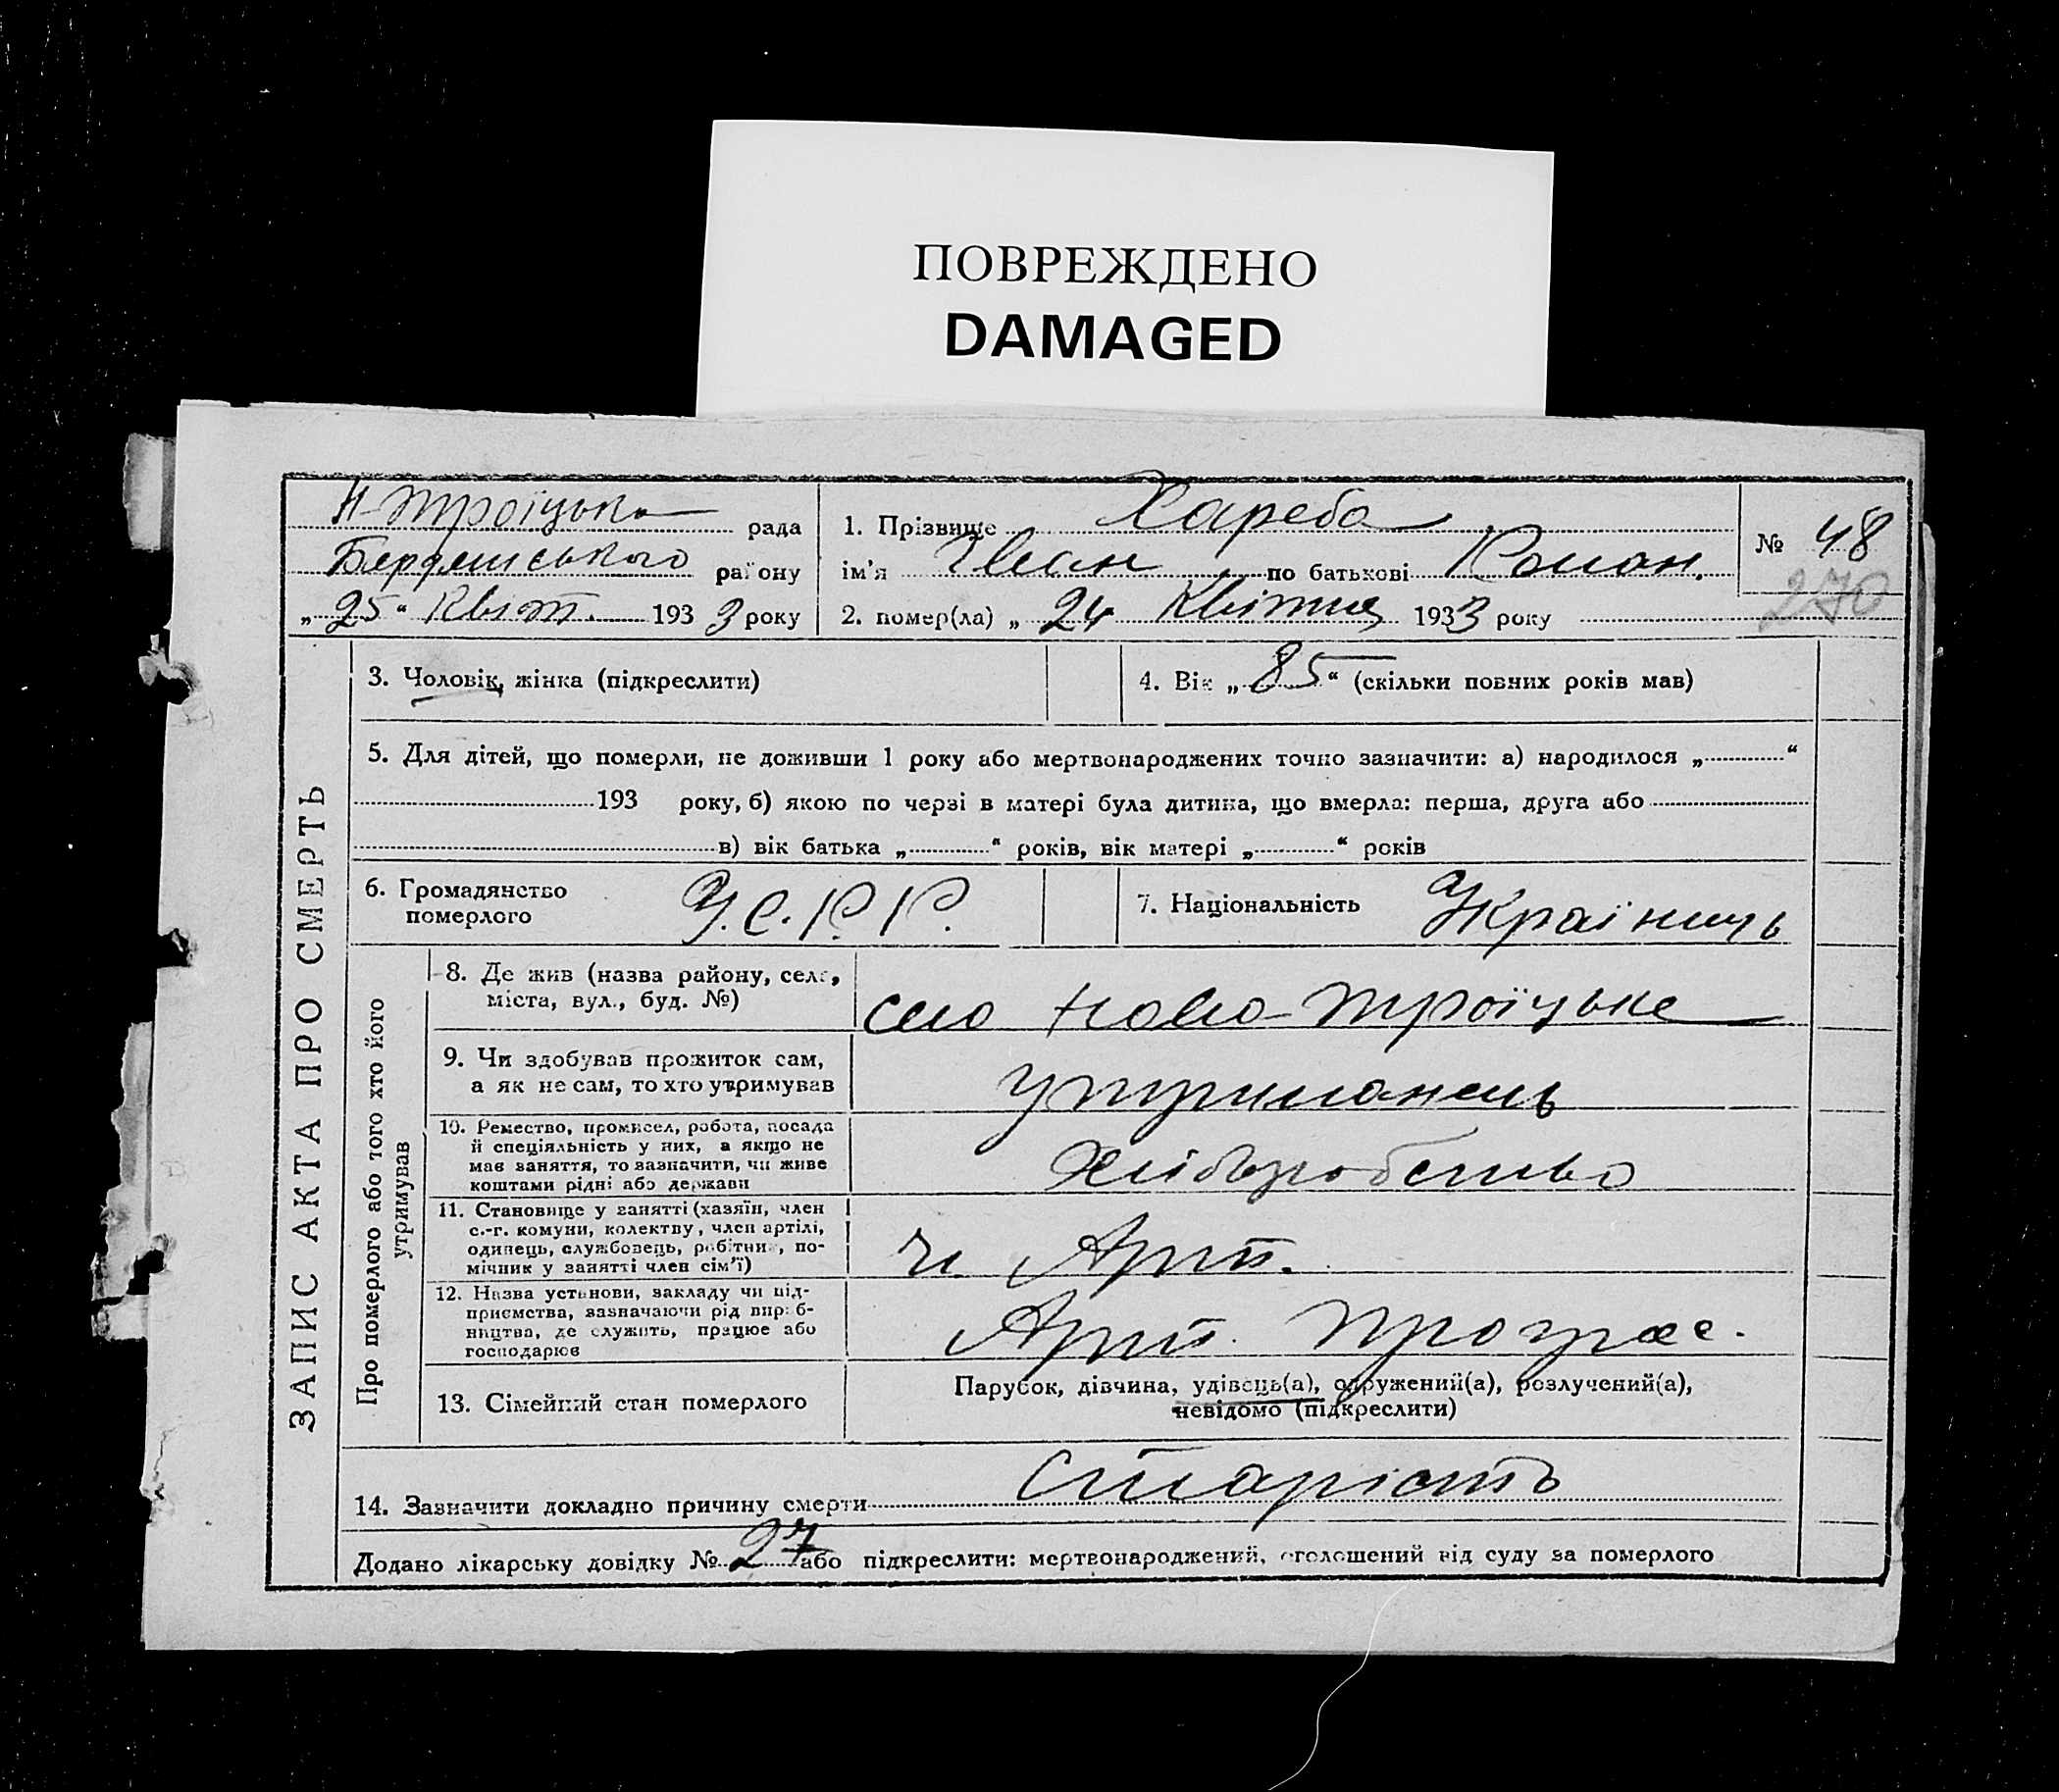 ПОВРЕЖДЕНО
DAMAGED
Н-Троїцька рада
Бердянського району
„25“ Квіт. 1933 року
1. Прізвище Хареба
ім'я Іван по батькові Роман.
2. помер(ла) „24 Квітня 1933 року
№ 48
270
ЗАПИС АКТА ПРО СМЕРТЬ
3. Чоловік, жінка (підкреслити)
4. Вік „85“ (скільки повних років мав)
5. Для дітей, що померли, не доживши 1 року або мертвонароджених точно зазначити: а) народилося „ “
193 року, б) якою по черзі в матері була дитина, що вмерла: перша, друга або
в) вік батька „ “ років, вік матері „ “ років
6. Громадянство
померлого
У.С.Р.Р.
7. Національність Українць
Про померлого або того хто його
утримував
8. Де жив (назва району, села,
міста, вул., буд. №)
село Ново-Троїцьке
9. Чи здобував прожиток сам,
а як не сам, то хто утримував
утриманець
10. Ремество, промисел, робота, посада
й спеціяльність у них, а якщо не
має заняття, то зазначити, чи живе
коштами рідні або держави
Хліборобство
11. Становище у занятті (хазяїн, член
с.-г. комуни, колектву, член артілі,
одинець, службовець, робітник, по-
мічник у занятті член сім'ї)
чл. Арт.
12. Назва установи, закладу чи під-
приємства, зазначаючи рід вироб-
ництва, де служить, працює або
господарює
Арт. Прогрес.
13. Сімейний стан померлого
Парубок, дівчина, удівець(а), одружений(а), розлучений(а),
невідомо (підкреслити)
14. Зазначити докладно причину смерти Старість
Додано лікарську довідку № 27 або підкреслити: мертвонароджений, оголошений від суду за померлого